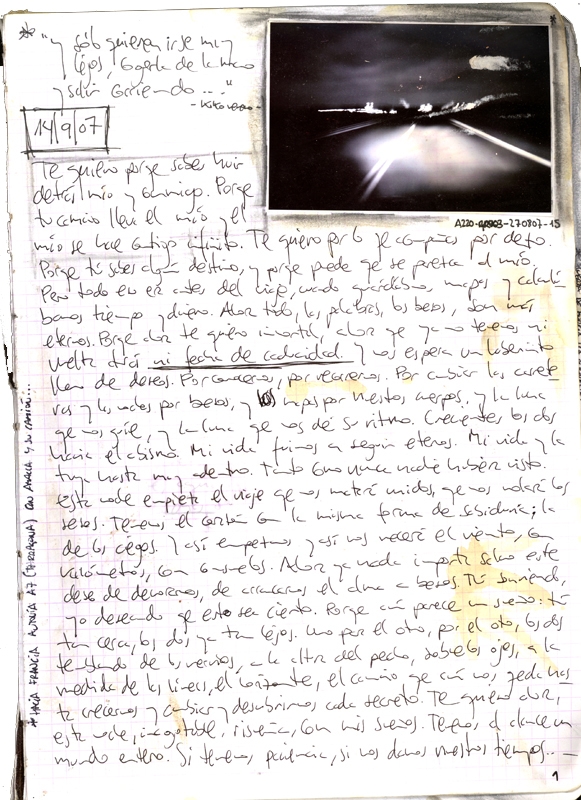 * "y sólo quieren irse muy
lejos, cogerla de la mano
y salir corriendo..."
- Kiko Veneno -
14/9/07
A220-ap903-270807-15
Te quiero porque sabes huir
detrás mío y conmigo. Porque
tu camino lleva el mío y el
mío se hace contigo infinito. Te quiero por lo que compañas por dentro.
Porque tú sabes algún destino, y porque puede que se parezca al mío.
Pero todo era antes del viaje, cuando guardábamos mapas y calculá-
bamos tiempo y dinero. Ahora todo, las palabras, los besos, son más
eternos. Porque ahora te quiero inmortal, ahora que ya no tenemos ni
vuelta atrás ni fecha de caducidad y nos espera un laberinto
lleno de deseos. Por conocernos, por recorrernos. Por cambiar las carrete-
ras y las noches por besos, y los mapas por nuestros cuerpos, y la luna
que nos guíe, y la luna que nos dé su ritmo. Crecientes los dos
hacia el abismo. Mi vida fuimos a seguir eternos. Mi vida y la
tuya hasta muy adentro. Tanto como nunca nadie hubiera visto.
Esta noche empieza el viaje que nos matará unidos, que nos volará los
sesos. Tenemos el corazón con la misma forma de sabiduría; la
de los ciegos. Y así empezamos y así nos mecerá el viento, con
kilómetros, con consuelos. Ahora ya nada importa salvo este
deseo de devorarnos, de arrancarnos el alma a besos. Tú sonriendo,
yo deseando que esto sea cierto. Porque aún parece un sueño: tú
tan cerca, los dos ya tan lejos. Uno por el otro, por el otro, los dos
temblando de los nervios, a la altura del pecho, sobre los ojos, a la
medida de las líneas, el horizonte, el camino que aún nos queda has-
ta crecernos y cambiar y descubrirnos cada secreto. Te quiero ahora,
esta noche, inagotable, risueña, con mis sueños. Tenemos al alcance un
mundo entero. Si tenemos paciencia, si nos damos nuestros tiempos...
* HACIA FRANCIA AUTOVÍA A7 (TARRAGONA) CON AMALIA Y SU CAMIÓN...
1